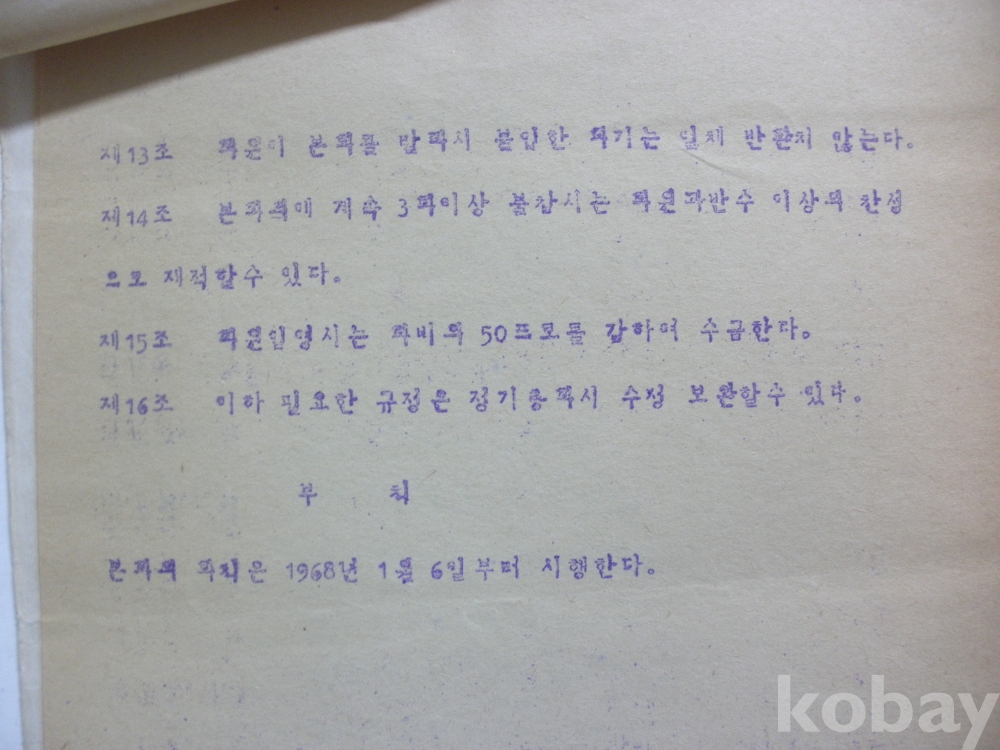 제13조 회원이 본회를 탈퇴시 불입한 회기는 일체 반환치 않는다.
제14조 본회의에 계속 3회이상 불참시는 회원과반수 이상의 찬성
으로 제적할수 있다.
제15조 회원입영시는 회비의 50프로를 감하여 수금한다.
제16조 이하 필요한 규정은 정기총회시 수정 보완할수 있다.
부 칙
본회의 회칙은 1968년 1월 6일부터 시행한다.
kobay